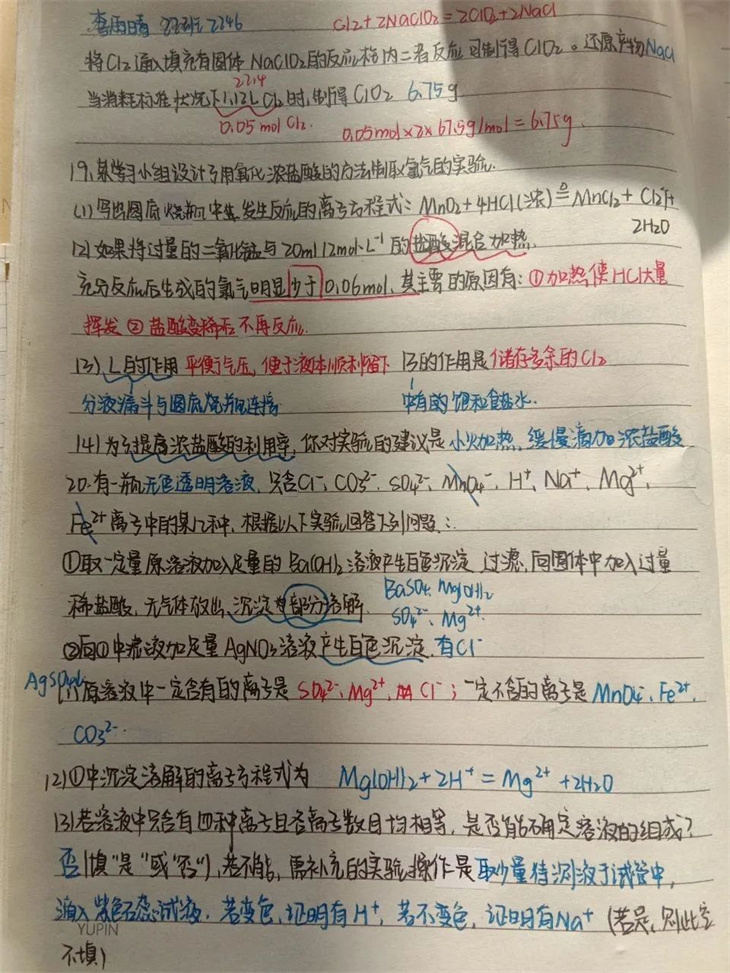 李雨晴 22班 2246
Cl₂+2NaClO₂=2ClO₂+2NaCl
将Cl₂通入填充有固体NaClO₂的反应柱内二者反应可制得ClO₂。还原产物NaCl
22.4
当消耗标准状况下1.12L Cl₂时,制得ClO₂ 6.75g
0.05mol Cl₂. 0.05mol×2×67.5g/mol=6.75g.
19.某学习小组设计了用氧化浓盐酸的方法制取氯气的实验.
(1)写出圆底烧瓶中发生反应的离子方程式: MnO₂+4HCl(浓)≜MnCl₂+Cl₂↑+
2H₂O
(2)如果将过量的二氧化锰与20ml 12mol·L⁻¹的盐酸混合加热.
充分反应后生成的氯气明显少于0.06mol.其主要的原因有:①加热使HCl大量
挥发②盐酸变稀后不再反应.
(3)L的作用 平衡气压,便于液体顺利留下 B的作用是储存多余的Cl₂
分液漏斗与圆底烧瓶连接 中有的饱和食盐水.
(4)为了提高浓盐酸的利用率,你对实验的建议是小火加热,缓慢滴加浓盐酸
20.有一瓶无色透明溶液,只含Cl⁻, CO₃²⁻, SO₄²⁻, MnO₄⁻, H⁺, Na⁺, Mg²⁺,
Fe²⁺离子中的某几种,根据以下实验回答下列问题:
①取一定量原溶液加入足量的Ba(OH)₂溶液产生白色沉淀 过滤,向固体中加入过量
BaSO₄, Mg(OH)₂
稀盐酸,无气体放出,沉淀部分溶解.
SO₄²⁻, Mg²⁺
②向①中滤液加足量AgNO₃溶液产生白色沉淀.有Cl⁻
(1)原溶液中一定含有的离子是 SO₄²⁻, Mg²⁺, Cl⁻;一定不含的离子是MnO₄⁻, Fe²⁺,
CO₃²⁻
(2)①中沉淀溶解的离子方程式为 Mg(OH)₂+2H⁺=Mg²⁺+2H₂O
(3)若溶液中只含有四种离子且各离子数目均相等,是否能确定溶液的组成?
否(填"是"或"否"),若不能,需补充的实验操作是取少量待测液于试管中,
滴入紫色石蕊试液.若变色,证明有H⁺,若不变色,证明有Na⁺(若是,则此空
YUPIN
不填)